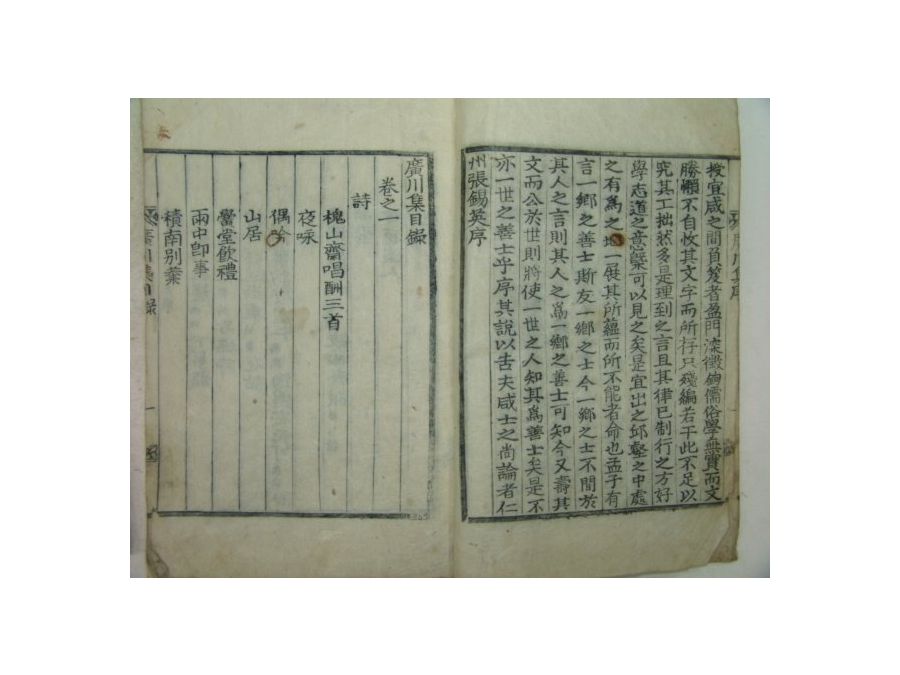 授宜咸之間負笈者盈門深徵徇儒俗學無實而文
勝顧不自收其文字而所存只殘編若干此不足以
究其工拙然多是理到之言且其律己制行之方好
學志道之意槩可以見之矣是宜出之邱壑之中處
之有爲之地一展其所蘊而所不能者命也孟子有
言一鄉之善士斯友一鄉之士今一鄉之士不間於
其人之言則其人之爲一鄉之善士可知今又壽其
文而公於世則將使一世之人知其爲善士矣是不
亦一世之善士乎序其說以告夫咸士之尚論者仁
州張錫英序
廣川集序
廣川集目錄
卷之一
詩
槐山齋唱酬三首
夜咏
偶吟
山居
黌堂飮禮
雨中卽事
積南別業
廣川集目錄 一